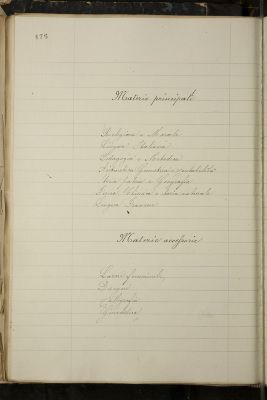 Materie principali
Religione e Morale
Lingua Italiana
Pedagogia e Metodica
Aritmetica Geometria e contabilità
Storia Patria e Geografia
Fisica Naturale
Lingua Francese
Materie accessorie
Lavori femminili
Disegno
Calligrafia
Ginnastica